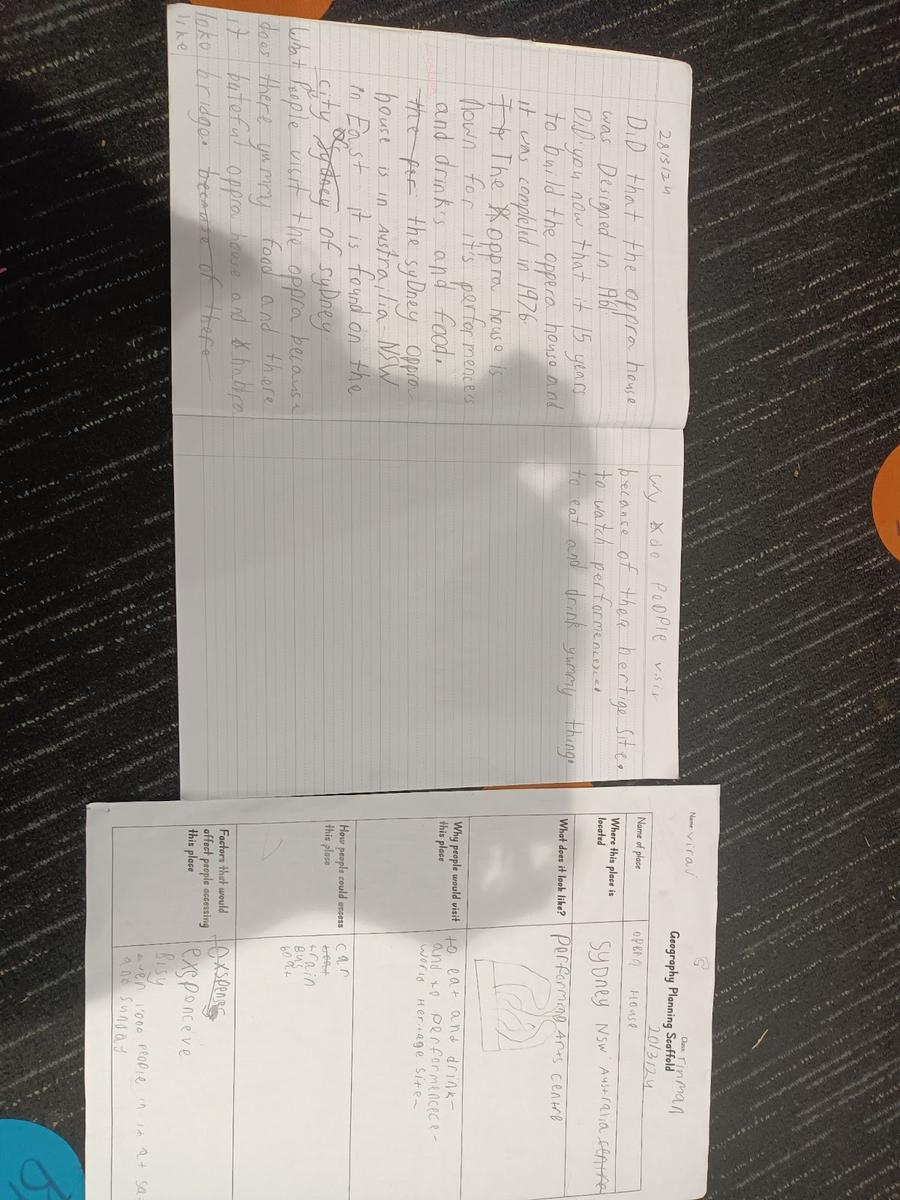 28/3/24
DiD that the oppra house
was Designed in
DiD you now that it 15 years
to build the oppera house and
it was completed in 1976
The oppra house is
Nown for it's performencess
and drink's and food.
the per the syDney oppra
house is in Australia NSW
in East it is found on the
city sydney of syDney
What people visit the oppra because
does there yummy food and there
it bateful oppra house and
loko bridge. because of there
like
Wy do PeoPle visit
because of thea hertige site.
to watch performences.
to eat and drink yummy thing.
Name: Viran
Class: Tinman
Geography Planning Scaffold
20/3/24
Name of place
opera House
Where this place is
located
SyDney NSW Australia
What does it look like?
performing Arts centre
Why people would visit
this place
to eat and drink-
and to performencece-
world Heritage site-
How people could access
this place
car
train
Bus
boat
Factors that would
affect people accessing
this place
exsponceive
Bisy
over 1000 people in it at sa
and sunday